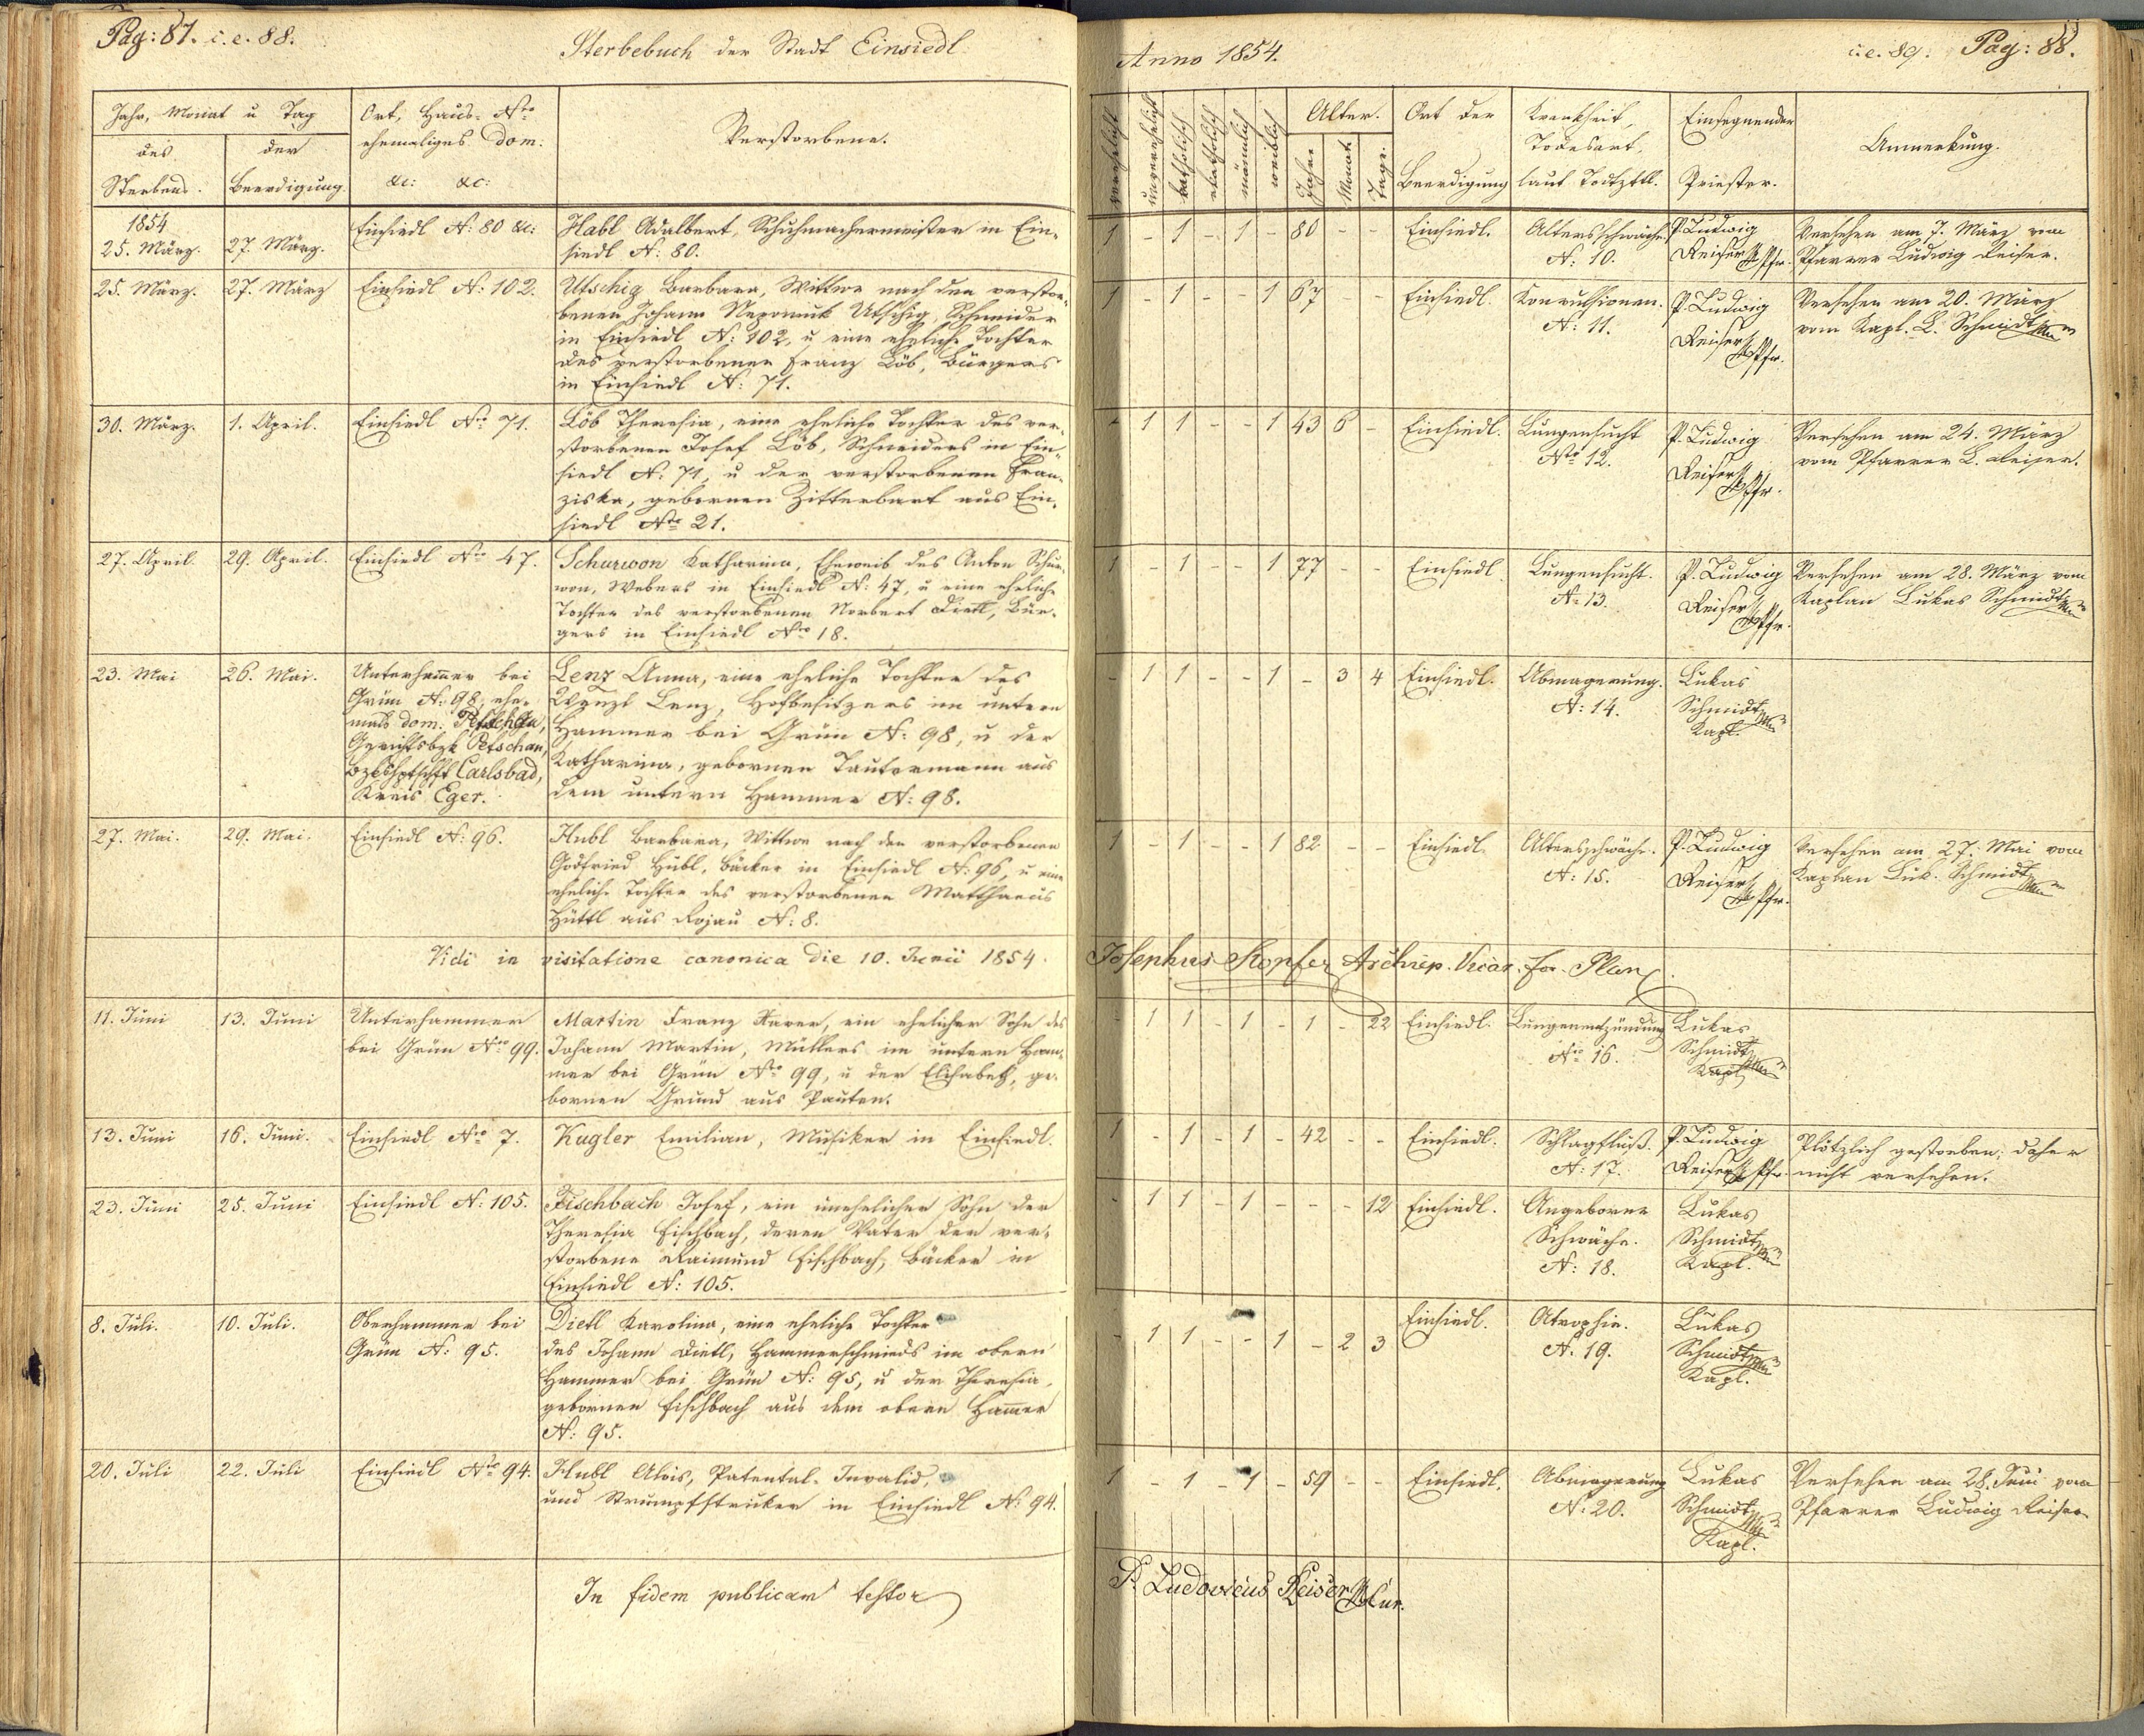 Pag: 87. i. e. 88.
Sterbebuch der Stadt Einsiedl
Jahr, Monat u Tag
des Sterbens.
der Beerdigung.
Ort, Haus- Nro
ehemaliges dom:
&c: &c:
Verstorbene.
1854
25. März.
27. März.
Einsiedl N: 80 &c:
Habl Adalbert, Schuhmachermeister in Ein-
siedl N: 80.
25. März.
27. März
Einsiedl N: 102.
Utschig Barbara, Wittwe nach den verstor-
benen Johann Nepomuk Utschig, Schneider
in Einsiedl N: 102, u eine eheliche Tochter
des verstorbenen Franz Löb, Bürgers
in Einsiedl N: 71.
30. März.
1. April.
Einsiedl Nro 71.
Löb Theresia, eine eheliche Tochter des ver-
storbenen Josef Löb, Schneiders in Ein-
siedl N: 71, u der verstorbenen Fran-
ziska, gebornen Zitterbart aus Ein-
siedl Nro 21.
27. April.
29. April.
Einsiedl Nro 47.
Schurwon Katharina, Eheweib des Anton Schur-
won, Webers in Einsiedl N: 47, u eine eheliche
Tochter des verstorbenen Norbert Dietl, Bür-
gers in Einsiedl Nro 18.
23. Mai
26. Mai.
Unterhammer bei
Grün N: 98, ehe-
mals dom. Petschau,
Gerichtsbzk Petschau,
Bzkshptschft Carlsbad,
Kreis Eger.
Lenz Anna, eine eheliche Tochter des
Wenzl Lenz, Hofbesitzers im untern
Hammer bei Grün N: 98, u der
Katharina, gebornen Tautermann aus
dem untern Hammer N: 98.
27. Mai.
29. Mai.
Einsiedl N: 96.
Hubl Barbara, Wittwe nach den verstorbenen
Godfried Hubl, Bäcker in Einsiedl N: 96, u eine
eheliche Tochter des verstorbenen Matthaeus
Hüttl aus Rojau N: 8.
Vidi in visitatione canonica die 10. Junii 1854.
11. Juni
13. Juni
Unterhammer
bei Grün Nro 99.
Martin Franz Xaver, ein ehelicher Sohn des
Johann Martin, Müllers im untern Ham-
mer bei Grün Nro 99, u der Elisabeth, ge-
bornen Grund aus Pauten.
13. Juni
16. Juni.
Einsiedl Nro 7.
Kugler Emilian, Musiker in Einsiedl.
23. Juni
25. Juni
Einsiedl N: 105.
Fischbach Josef, ein unehelicher Sohn der
Theresia Fischbach, deren Vater der ver-
storbene Raimund Fischbach, Bäcker in
Einsiedl N: 105.
8. Juli.
10. Juli.
Oberhammer bei
Grün N: 95.
Dietl Karolina, eine eheliche Tochter
des Johann Dietl, Hammerschmieds im obern
Hammer bei Grün N: 95, u der Theresia,
gebornen Fischbach aus dem obern Hammer
N: 95.
20. Juli
22. Juli
Einsiedl Nro 94.
Hubl Alois, Patental-Invalid,
und Strumpfstricker in Einsiedl N: 94.
In fidem publicam testor
Anno 1854.
i. e. 89. Pag: 88.
verehelicht
unverehelicht
katholisch
akatholisch
männlich
weiblich
Alter.
Jahre
Monat
Tage.
Ort der
Beerdigung
Krankheit,
Todesart,
laut Todtzttl.
Einsegnender
Priester.
Anmerkung.
1 - 1 - 1 - 80 - -
Einsiedl.
Altersschwäche.
N: 10.
P. Ludwig
Reiser Pfr.
Versehen am 7. März vom
Pfarrer Ludwig Reiser.
1 - 1 - - 1 67 - -
Einsiedl.
Konvulsionen.
N: 11.
P. Ludwig
Reiser Pfr.
Versehen am 20. März
vom Kapl. L. Schmidt
- 1 1 - - 1 43 6 -
Einsiedl.
Lungensucht
Nro 12.
P. Ludwig
Reiser Pfr.
Versehen am 24. März
vom Pfarrer L. Reiser.
1 - 1 - - 1 77 - -
Einsiedl
Lungensucht.
N: 13.
P. Ludwig
Reiser Pfr.
Versehen am 28. März vom
Kaplan Lukas Schmidt
- 1 1 - - 1 - 3 4
Einsiedl.
Abmagerung.
N: 14.
Lukas
Schmidt
Kapl.
1 - 1 - - 1 82 - -
Einsiedl.
Altersschwäche.
N: 15.
P. Ludwig
Reiser Pfr.
Versehen am 27. Mai vom
Kaplan Luk. Schmidt
Josephus Stopfer Archiep. Vicar. for. Plan
- 1 1 - 1 - 1 - 22
Einsiedl.
Lungenentzündung
Nro 16.
Lukas
Schmidt
Kapl
1 - 1 - 1 - 42 - -
Einsiedl.
Schlagfluß.
N: 17.
P. Ludwig
Reiser Pfr.
Plötzlich gestorben, daher
nicht versehen.
- 1 1 - 1 - - - 12
Einsiedl.
Angeborne
Schwäche.
N: 18.
Lukas
Schmidt
Kapl.
- 1 1 - - 1 - 2 3
Einsiedl.
Atrophie.
N. 19.
Lukas
Schmidt
Kapl.
1 - 1 - 1 - 59 - -
Einsiedl.
Abmagerung
N: 20.
Lukas
Schmidt
Kapl.
Versehen am 28. Juni vom
Pfarrer Ludwig Reiser
P. Ludovicus Reiser Cur.